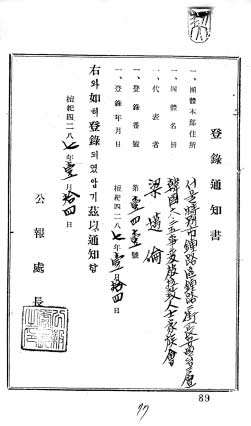 登錄通知書
一、團體本部住所 서울特別市鍾路區鍾路二街
一、團體名稱 韓國六·二五事變被拉致人士家族會
一、代表者 梁
一、登錄番號 第 號
一、登錄年月日 檀紀四二八七年壹月拾四日
右와如히登錄되였압기玆以通知함
檀紀四二八七年壹月拾四日
公報處長
89